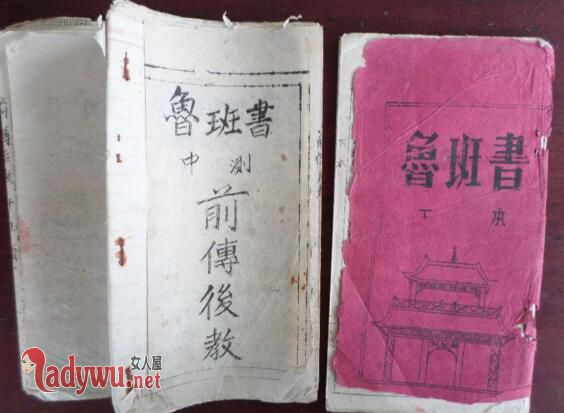 魯班書
中 測
前傳後教
魯班書
丁 本
女人屋
ladywu.net